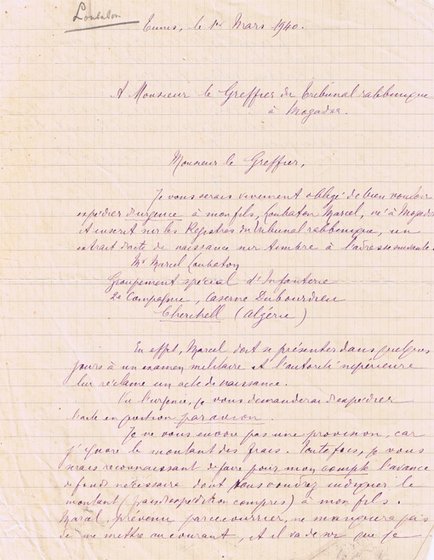 Loubaton
Tunis, le 1er Mars 1940.
A Monsieur le Greffier du Tribunal rabbinique
à Mogador.
Monsieur le Greffier,
Je vous serais vivement obligé de bien vouloir
expédier d'urgence à mon fils, Loubaton Marcel, né à Mogador
et inscrit sur les Registres du tribunal rabbinique, un
extrait d'acte de naissance sur timbre à l'adresse suivante.
Mr Marcel Loubaton
Groupement spécial d'Infanterie
2e Compagnie, Caserne Dubourdieu
Cherchell (Algérie)
En effet, Marcel doit se présenter dans quelques
jours à un examen militaire et l'autorité supérieure
lui réclame un acte de naissance.
Vu l'urgence, je vous demanderai d'expédier
l'acte en question par avion
Je ne vous envoie pas une provision, car
j'ignore le montant des frais. Toutefois, je vous
serais reconnaissant de faire pour mon compte l'avance
de fonds nécessaire dont vous voudrez indiquer le
montant (frais expédition compris) à mon fils.
Marcel, prévenu par ce courrier, ne manquera pas
de me mettre au courant, et il va de soi que je